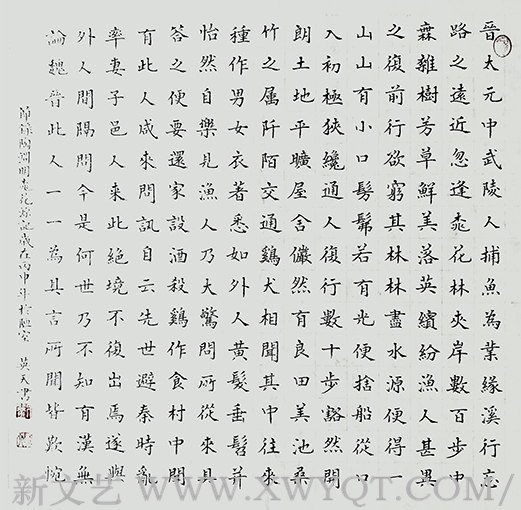 晉太元中武陵人捕魚為業緣溪行忘
路之遠近忽逢桃花林夾岸數百步中
無雜樹芳草鮮美落英繽紛漁人甚異
之復前行欲窮其林林盡水源便得一
山山有小口髣髴若有光便捨船從口
入初極狹纔通人復行數十步豁然開
朗土地平曠屋舍儼然有良田美池桑
竹之屬阡陌交通鷄犬相聞其中往來
種作男女衣著悉如外人黃髮垂髫并
怡然自樂見漁人乃大驚問所從來具
答之便要還家設酒殺鷄作食村中聞
有此人咸來問訊自云先世避秦時亂
率妻子邑人來此絕境不復出焉遂與
外人間隔問今是何世乃不知有漢無
論魏晉此人一一為具言所聞皆歎惋
節錄陶淵明桃花源記歲在丙申年於室 英天書
新文艺 WWW.XWYQT.COM/